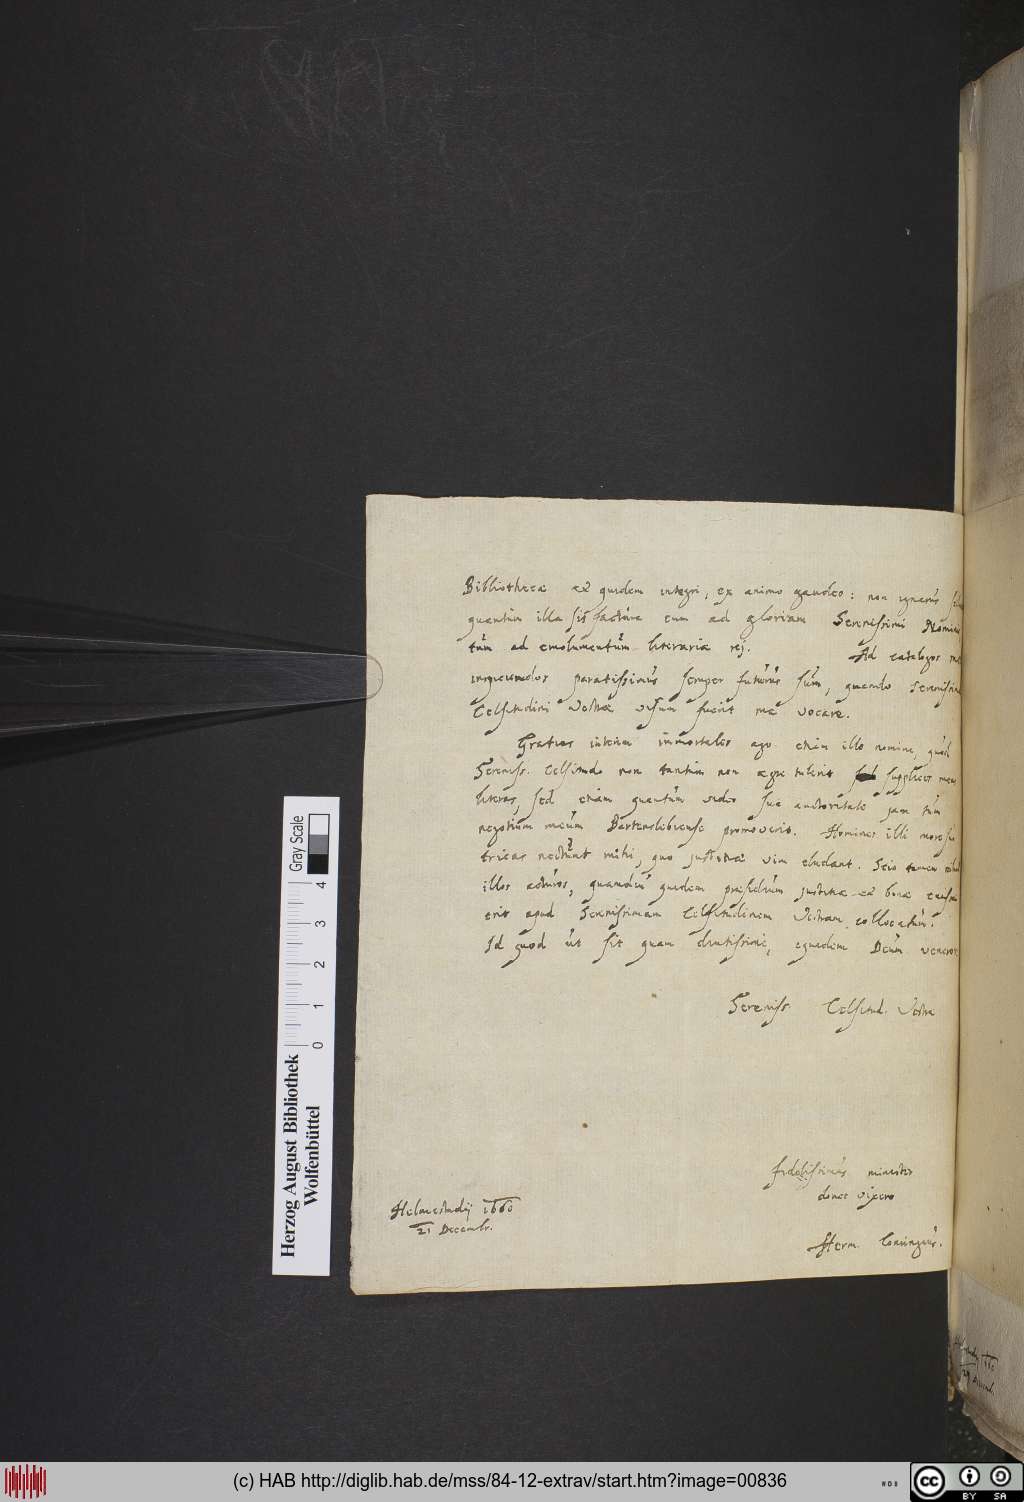 Bibliothecæ et quidem integri, ex animo gaudeo: non ignarus
quantum illa sit factura cum ad gloriam Serenissimi Nominis
tum ad emolumentum literariæ rei. Ad catalogos
inspiciendos paratissimus semper futurus sum, quando
Celsitudini Vestræ visum fuerit me vocare.
Gratias interim immortales ago etiam illo nomine, quod
Sereniss. Celsitudo non tantum non ægre tulerit supplices meas
literas, sed etiam quantum video sua autoritate jam tum
negotium meum Bartenslebiense promoverit. Homines illi more
tricas nectunt mihi, quo justitiæ vim eludant. Scio tamen nihil
illos acturos, quamdiu quidem præsidium justitiæ et bonæ causæ
erit apud Serenissimam Celsitudinem Vestram collocatum.
Id quod ut sit quam diutissime, equidem Deum veneror
Sereniss. Celsitud. Vestræ
fidelissimus minister
donec vixero
Helmestadij 1660
21 Decembr.
Herm. Conringius.
Gray Scale
0 1 2 3 4
Herzog August Bibliothek
Wolfenbüttel
(c) HAB http://diglib.hab.de/mss/84-12-extrav/start.htm?image=00836
WDB
cc BY SA